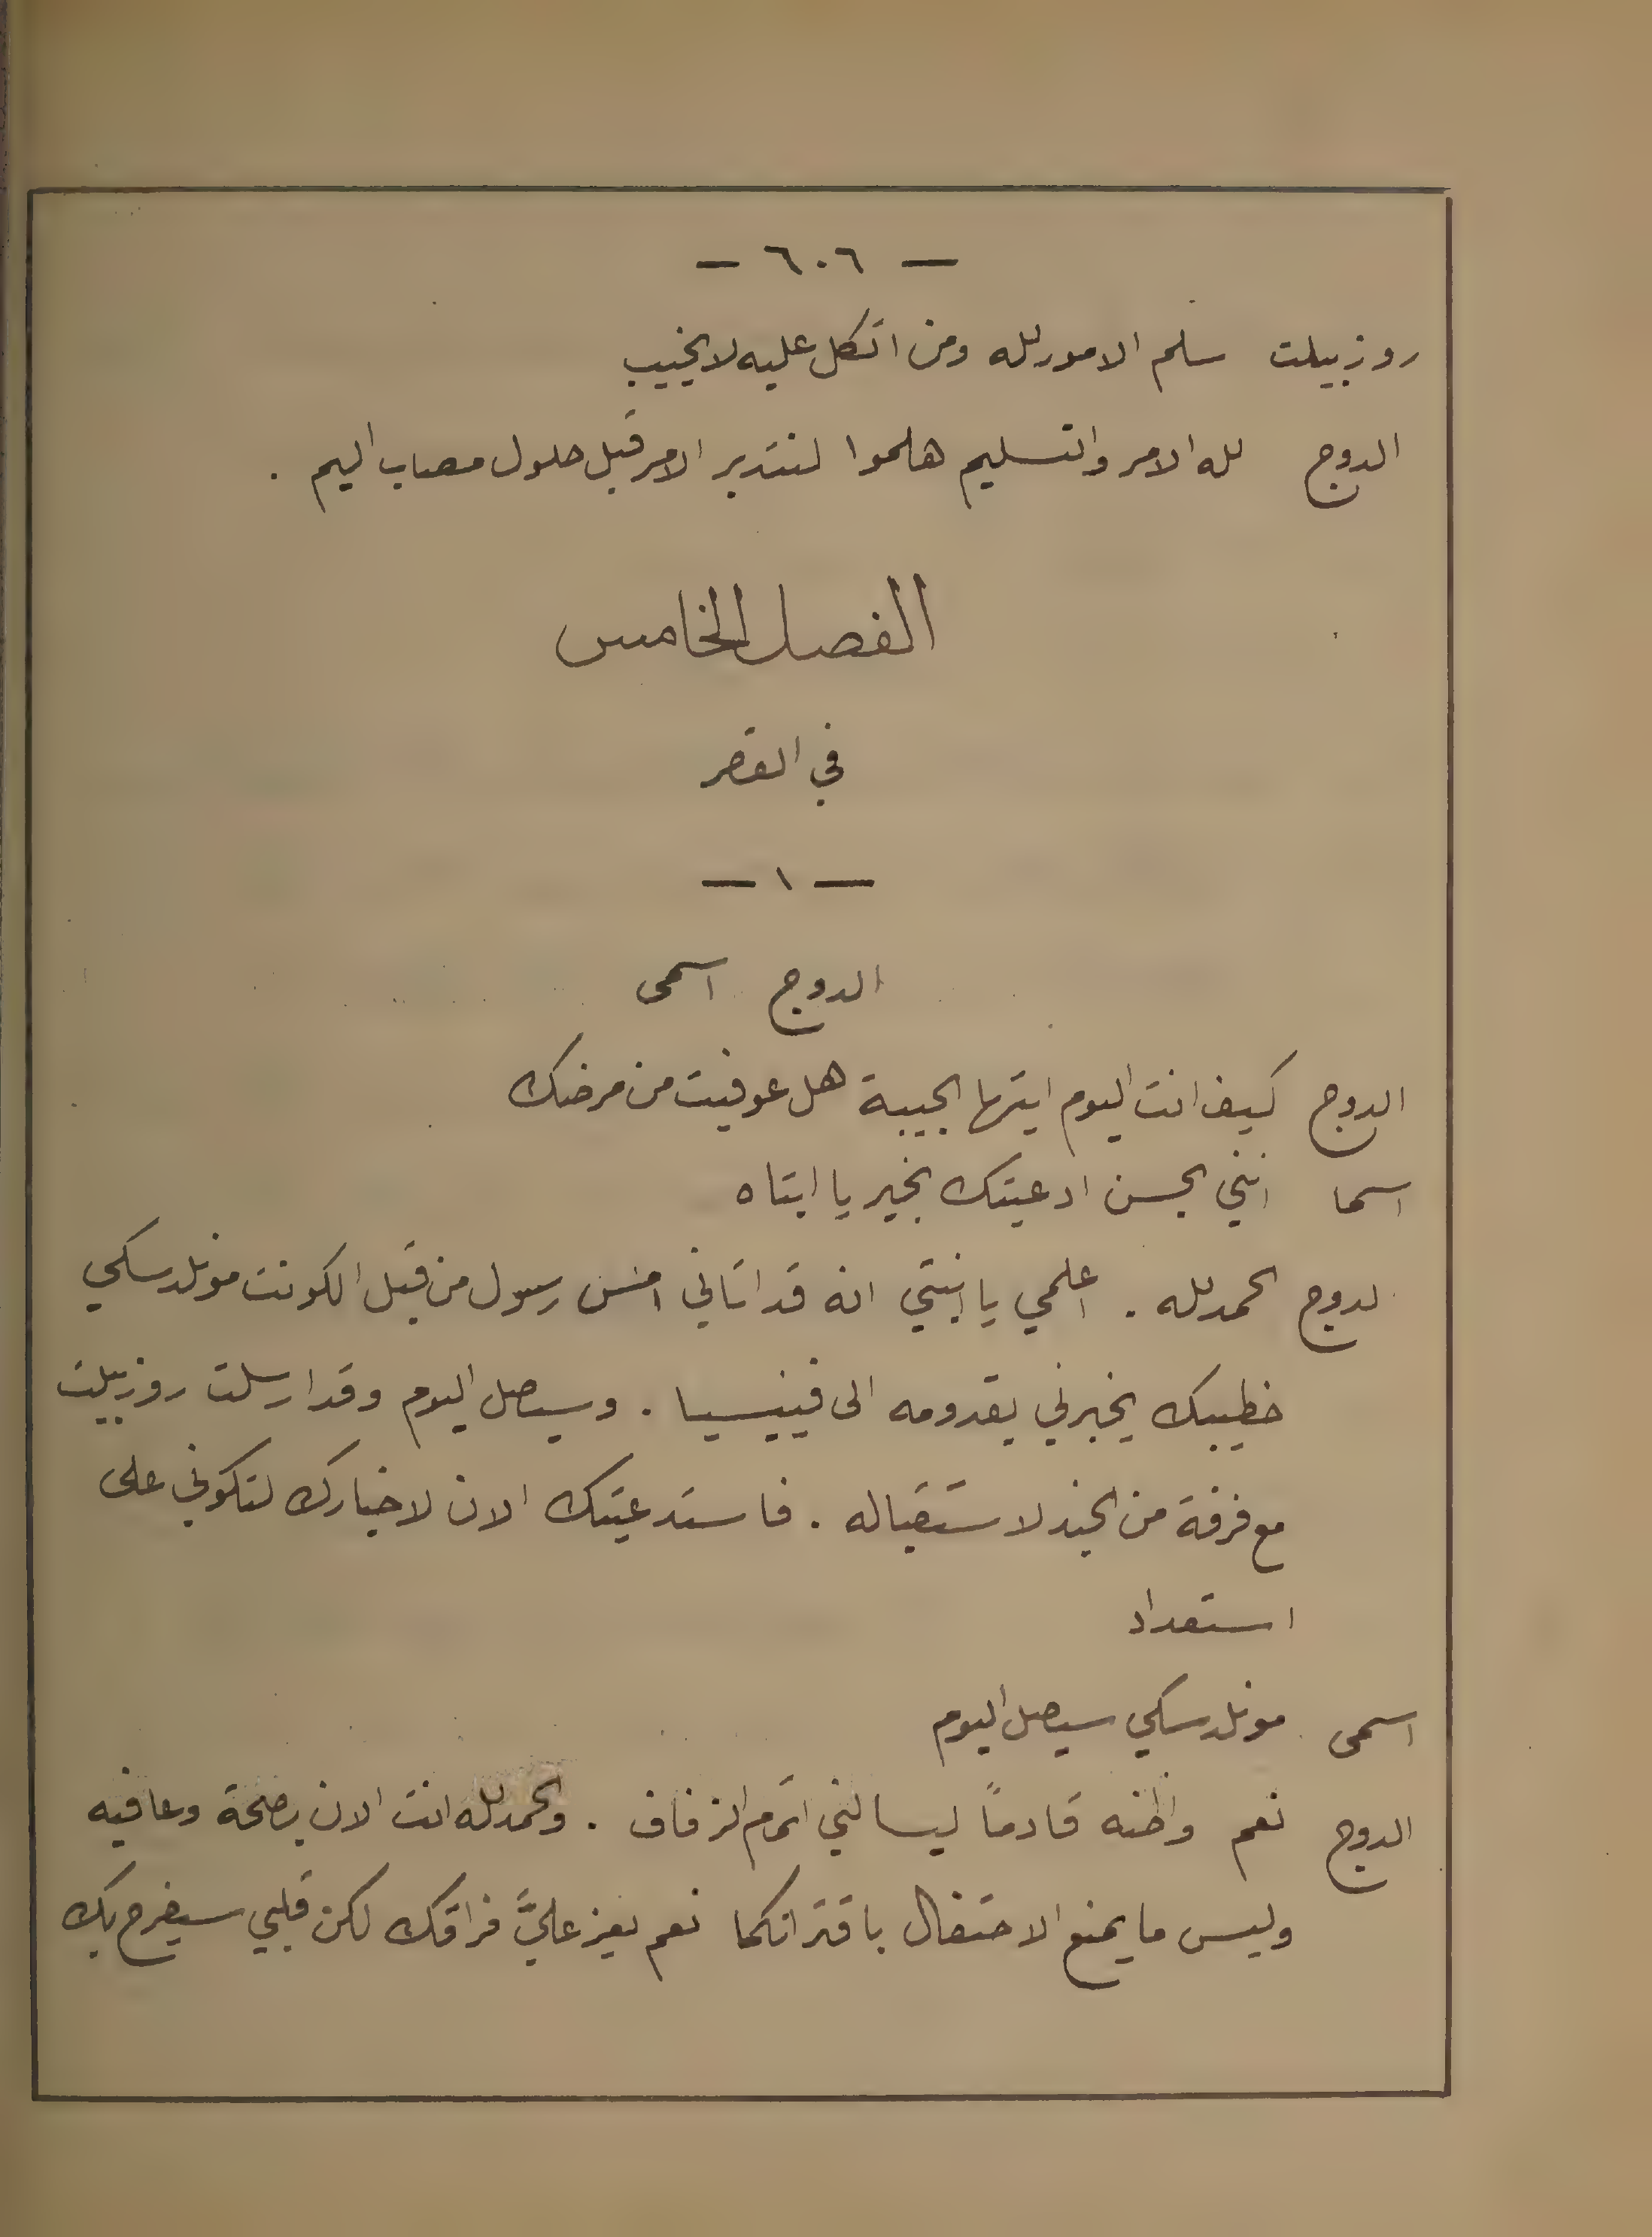 — ٦٠٦ —
روزبيلت سلم الامور لله ومن اتكل عليه لا يخيب
الدوج لله الامر والتسليم هلموا لنتدبر الامر قبل حلول مصاب اليم .
الفصل الخامس
في القصر
— ١ —
الدوج اسمى
الدوج كيف انت اليوم ايتها الحبيبة هل عوفيت من مرضك
اسما انني بحسن ادعيتك بخير يا ابتاه
لدوج الحمد لله . اعلمي يا ابنتي انه قد اتاني امس رسول من قبل الكونت مونلدسكي
خطيبك يخبرني بقدومه الى فينيسيا . وسيصل اليوم وقد ارسلت روزبيلت
مع فرقة من الجند لاستقباله . فاستدعيتك الان لاخبارك لتكوني على
استعداد
اسمى مونلدسكي سيصل اليوم
الدوج نعم واظنه قادماً ليسالني اتمام الزفاف . والحمد لله انت الان بصحة وعافيه
وليس ما يمنع الاحتفال باقترانكما نعم يعز عليَّ فراقك لكن قلبي سيفرح بك